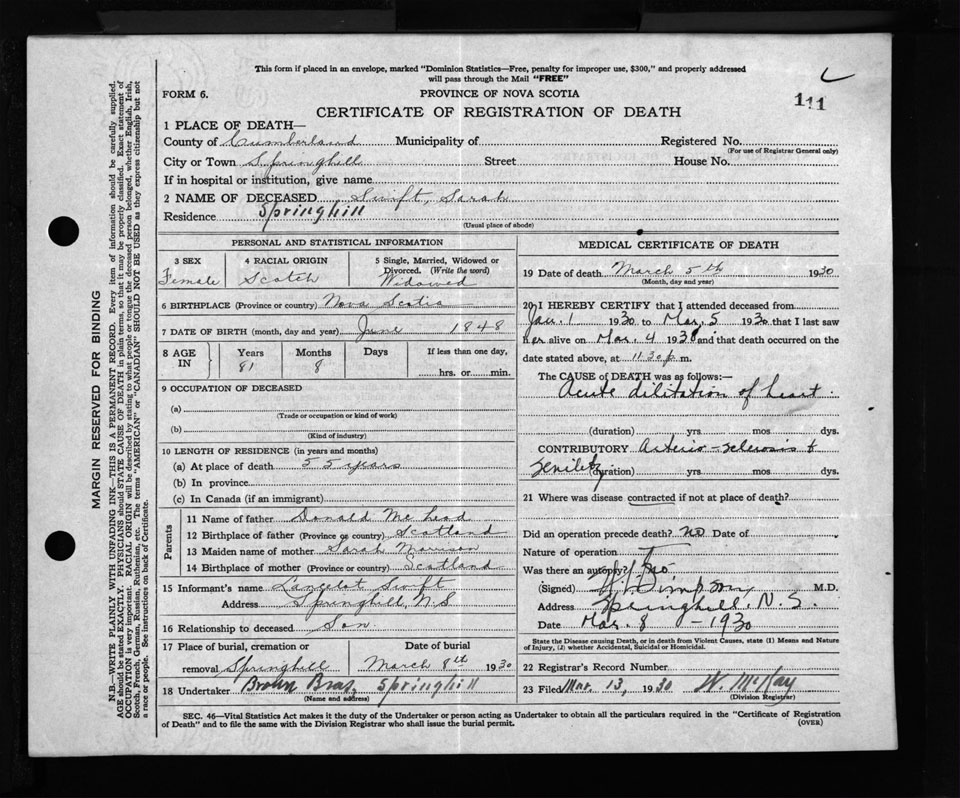 This form if placed in an envelope, marked "Dominion Statistics—Free, penalty for improper use, $300," and properly addressed
will pass through the Mail "FREE"
FORM 6.
PROVINCE OF NOVA SCOTIA
111
CERTIFICATE OF REGISTRATION OF DEATH
1 PLACE OF DEATH—
County of Cumberland Municipality of Registered No.
(For use of Registrar General only)
City or Town Springhill Street House No.
If in hospital or institution, give name
2 NAME OF DECEASED Swift, Sarah
Residence Springhill
(Usual place of abode)
PERSONAL AND STATISTICAL INFORMATION
3 SEX 4 RACIAL ORIGIN 5 Single, Married, Widowed or
Divorced. (Write the word)
Female Scotch Widowed
6 BIRTHPLACE (Province or country) Nova Scotia
7 DATE OF BIRTH (month, day and year) June 1848
8 AGE IN Years Months Days If less than one day,
81 8 hrs. or min.
9 OCCUPATION OF DECEASED
(a)
(Trade or occupation or kind of work)
(b)
(Kind of industry)
10 LENGTH OF RESIDENCE (in years and months)
(a) At place of death 55 years
(b) In province
(c) In Canada (if an immigrant)
Parents
11 Name of father Donald Mc Leod
12 Birthplace of father (Province or country) Scotland
13 Maiden name of mother Sarah Morrison
14 Birthplace of mother (Province or country) Scotland
15 Informant's name Lancelot Swift
Address Springhill N S
16 Relationship to deceased Son
17 Place of burial, cremation or Date of burial
removal Springhill March 8th 1930
18 Undertaker Brown Bros, Springhill
(Name and address)
MEDICAL CERTIFICATE OF DEATH
19 Date of death March 5th 1930
(Month, day and year)
20 I HEREBY CERTIFY that I attended deceased from
Jan. 1 1930 to Mar. 5 1930 that I last saw
her alive on Mar. 4 1930 and that death occurred on the
date stated above, at 11.30 p. m.
The CAUSE of DEATH was as follows:—
Acute dilitation of heart.
(duration) yrs mos dys.
CONTRIBUTORY Arterio sclerosis &
senility (duration) yrs mos dys.
21 Where was disease contracted if not at place of death?
Did an operation precede death? no Date of
Nature of operation
Was there an autopsy? no
(Signed) M.D.
Address Springhill. N. S.
Date Mar. 8 - 1930
State the Disease causing Death, or in death from Violent Causes, state (1) Means and Nature
of Injury, (2) whether Accidental, Suicidal or Homicidal.
22 Registrar's Record Number
23 Filed Mar. 13, 1930 W. McKay
(Division Registrar)
SEC. 46—Vital Statistics Act makes it the duty of the Undertaker or person acting as Undertaker to obtain all the particulars required in the "Certificate of Registration
of Death" and to file the same with the Division Registrar who shall issue the burial permit.
(OVER)
MARGIN RESERVED FOR BINDING
N.B.—WRITE PLAINLY WITH UNFADING INK—THIS IS A PERMANENT RECORD. Every item of information should be carefully supplied.
AGE should be stated EXACTLY. PHYSICIANS should STATE CAUSE OF DEATH in plain terms, so that it may be properly classified. Exact statement of
OCCUPATION is very important. RACIAL ORIGIN will be described by stating to what people or tongue the deceased person belonged, whether English, Irish,
Scotch, French, German, Russian, Ruthenian, etc. The terms "AMERICAN" or "CANADIAN" SHOULD NOT BE USED as they express citizenship but not
a race or people. See instructions on back of Certificate.